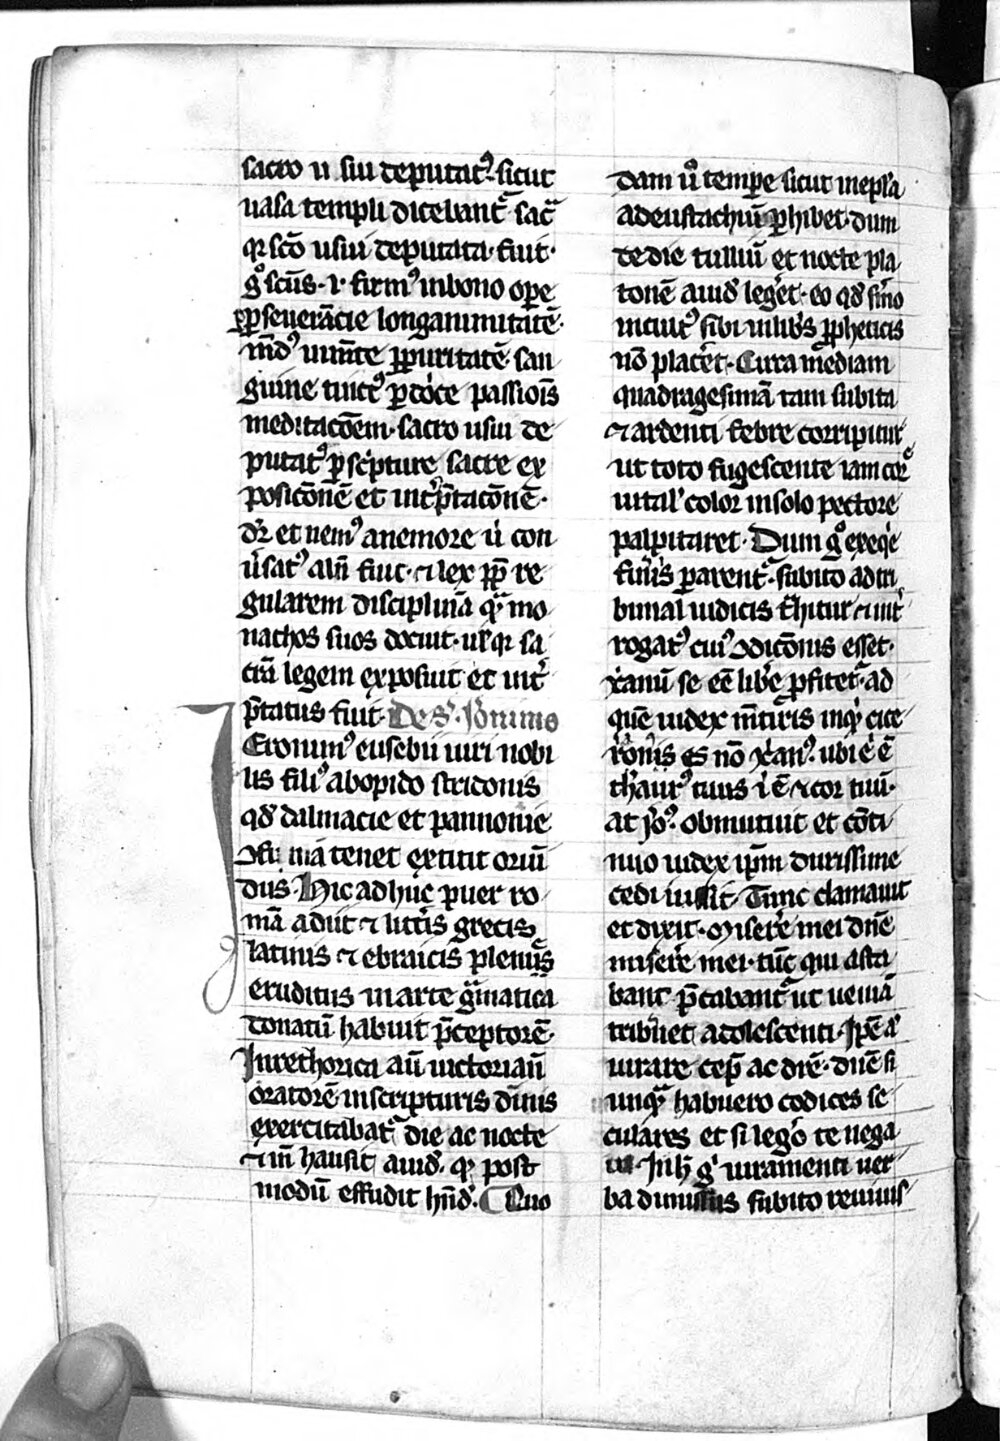 sacro ü siu deputatꝰ. sicut
uasa templi dicebant᷑ sac᷑
qꝛ scō usui deputata. fuit.
gͦ scūs. i. firmꝰ in bono ope
ꝑꝑseuerācie longanimitatē.
mūdꝰ in mēte ꝓpt puritatē. san
guine tinctꝰ ꝑ doloꝛe passiois̄
meditacōem. sacro usui de
putatꝰ ꝑ sc̓pture sacre ex
posicōnē et int̓p̄tacōnē.
dr̄ et nemꝰ a nemore ū con
ūsatꝰ alin̄ fuit. ⁊ lex ꝓpt re
gularem disciplinā qᷓ mo
nachos suos docuit. ul̓ qꝛ sa
crā legem exposuit et int̓
p̄tatus fuit. De s̄. Jōnimo
Jeronimꝰ eusebii uiri nobi
lis filiꝰ ab opido stridonis
qd̓ dalmacie et pannonie
ꝯfiniā tenet extitit oriū
dus. Hic adhuc puer ro
mā adiit ⁊ litt̓is grecis
latinis ⁊ ebraicis plenius᷑
eruditus in arte gᷓmatica
donatū habuit p̄ceptorē.
In rethorica aū uictorianū
oratorē in scripturis diuinis
exercitabat᷑ die ac nocte
⁊ in̄ hausit auid̓. qᷓ post
modū effudit hn̄d̓. Quo
dam ūͦ tempe sicut in epl̓a
ad eustachiū ꝑhibet. dum
de die tulliū et nocte pla
tonē auid̓ leger̓et. eo qd̓ sermo
incultꝰ sibi in libr̓s ꝓpheticis
nō placer̓et. Circa mediam
quadragesimā tam subita
⁊ ardenti febre corripitur
ut toto frigescente iam corꝑe
uital̓ color in solo pectore
palpitaret. Dum gͦ exeqͥe
funeris̓ parent᷑. subito ad tri
bunal iudicis t̓hitur ⁊ int̓
rogatꝰ cuiꝰ ꝯdicōnis esset.
xpianū se eē libere ꝓfitet᷑. ad
quē iudex mētiris inqͥt cice
ronis es nō xpianꝰ. ubi eni ē
thaurꝰ tuus ibi ē ⁊ cor tuū.
at Jōꝰ. obmutuit et cōti
nuo iudex ip̄m durissime
cedi iussit. Tunc clamauit
et dixit. Miserer̓e mei dn̄e
miserer̓e mei. tūc qui asta
bant p̄cabant᷑ ut ueniā
tribueret adolescenti. Ipē a᷑
iurare cep̄ ac dicer̓e. dn̄e si
unqᷓ habuero codices se
culares et si legero te nega
ui. In h̄ gͦ iuramenti uer
ba dimissus subito reuiuis